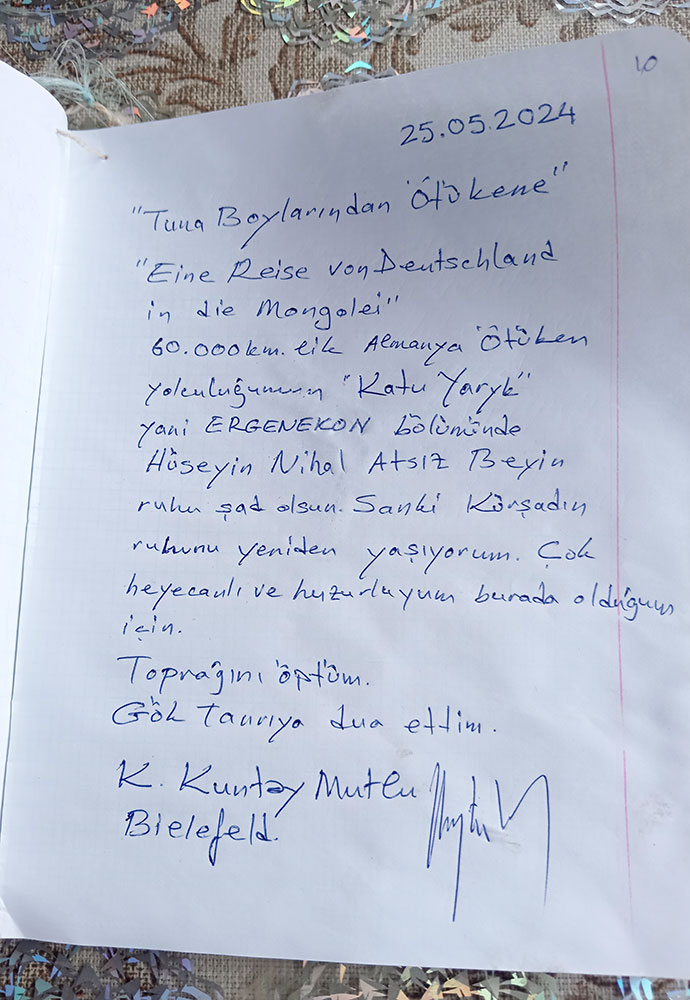 10
25.05.2024
"Tuna Boylarından Ötükene"
"Eine Reise von Deutschland
in die Mongolei"
60.000km. lik Almanya Ötüken
yolculuğumun "Katu Yaryk"
yani ERGENEKON bölümünde
Hüseyin Nihal Atsız Beyin
ruhu şad olsun. Sanki Kürşadın
ruhunu yeniden yaşıyorum. Çok
heyecanlı ve huzurluyum burada olduğum
için.
Toprağını öptüm.
Gök Tanrıya dua ettim.
K. Kuntay Mutlu
Bielefeld.